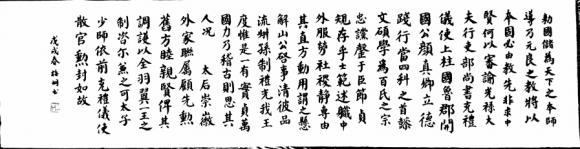 勅國儲為天下之本師
導乃元良之教將以
本固必由教先非求中
賢何以審諭光祿大
夫行吏部尚書充禮
儀使上柱國魯郡開
國公顏真卿立德
踐行當四科之首懿
文碩學為百氏之宗
忠讜罄于臣節貞
規存乎士範述職中
外服勞社稷靜專由
其直方動用謂之懸
解山公啓事清彼品
流叔孫制禮光我王
度惟是一有實貞萬
國力乃稽古則思其
人況 太后崇徽
外家聯屬顧先勳
舊方睦親賢俾其
調護以全羽翼一王之
制咨爾兼之可太子
少師依前充禮儀使
散官勳封如故
戊戌春 書